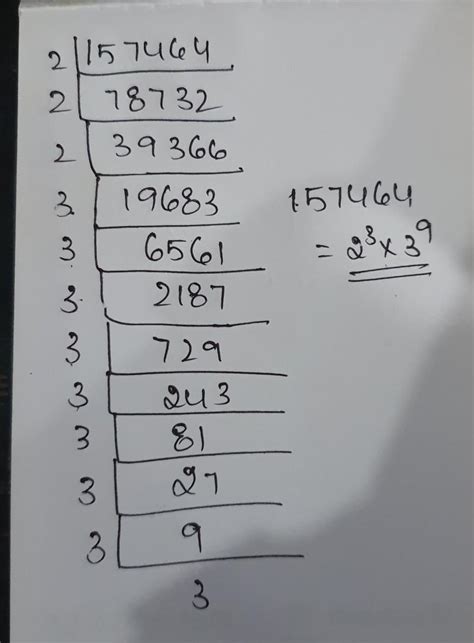 2 157464
2 78732
2 39366
3 19683
3 6561
3 2187
3 729
3 243
3 81
3 27
3 9
3
157464
= 2³ × 3⁹